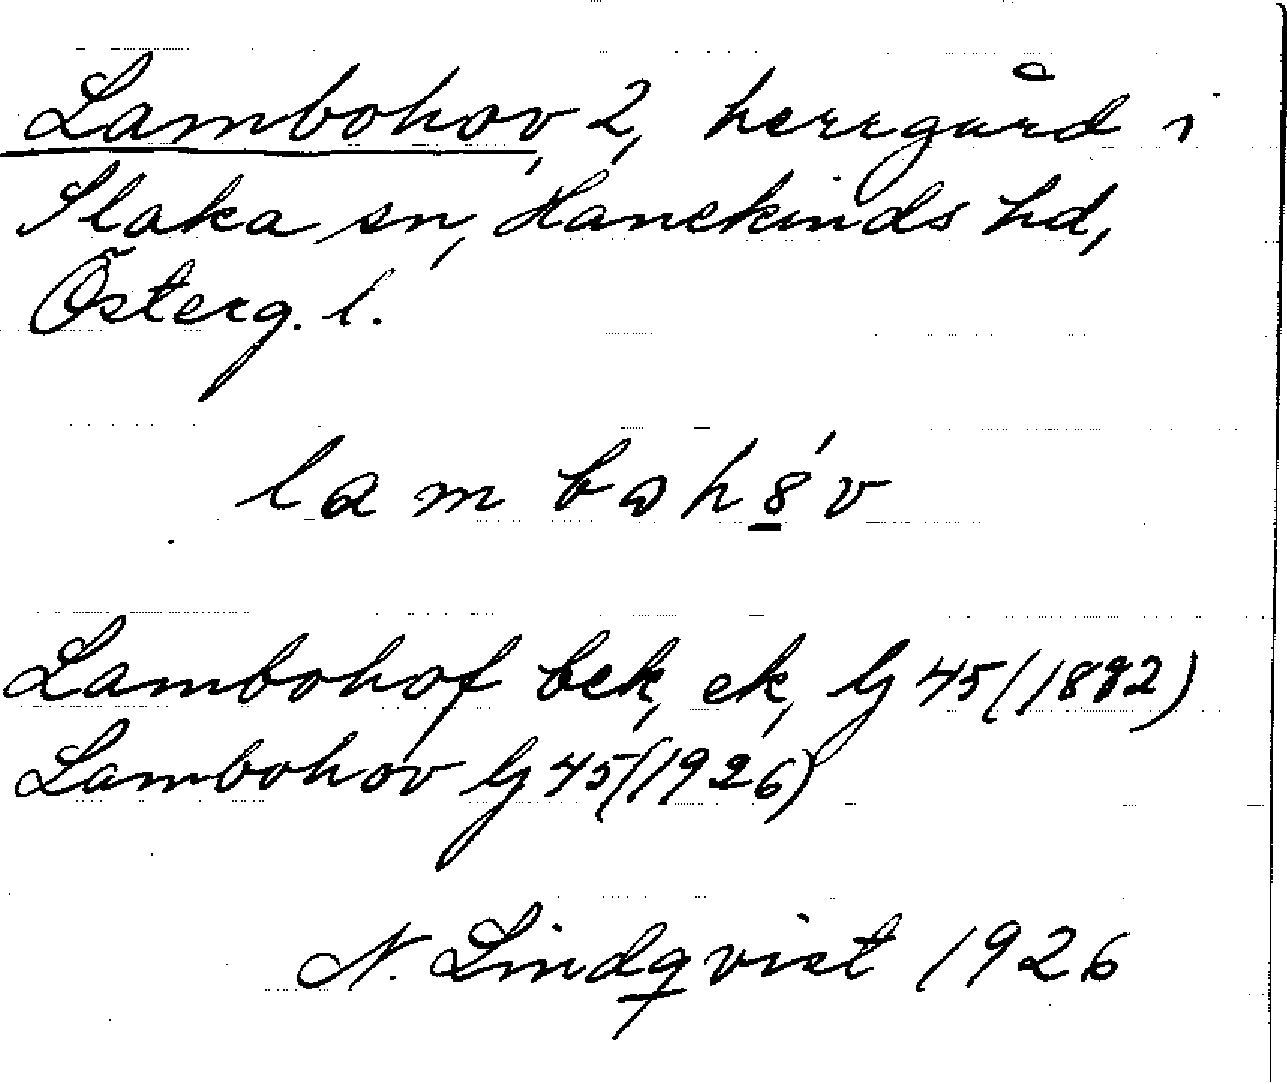 Lambohov, 2, herrgård i
Slaka sn, Hanekinds hd,
Österg. l.
Lambohof bek, ek, Gj 45 (1882)
Lambohov Gj 45 (1926)
N. Lindqvist 1926